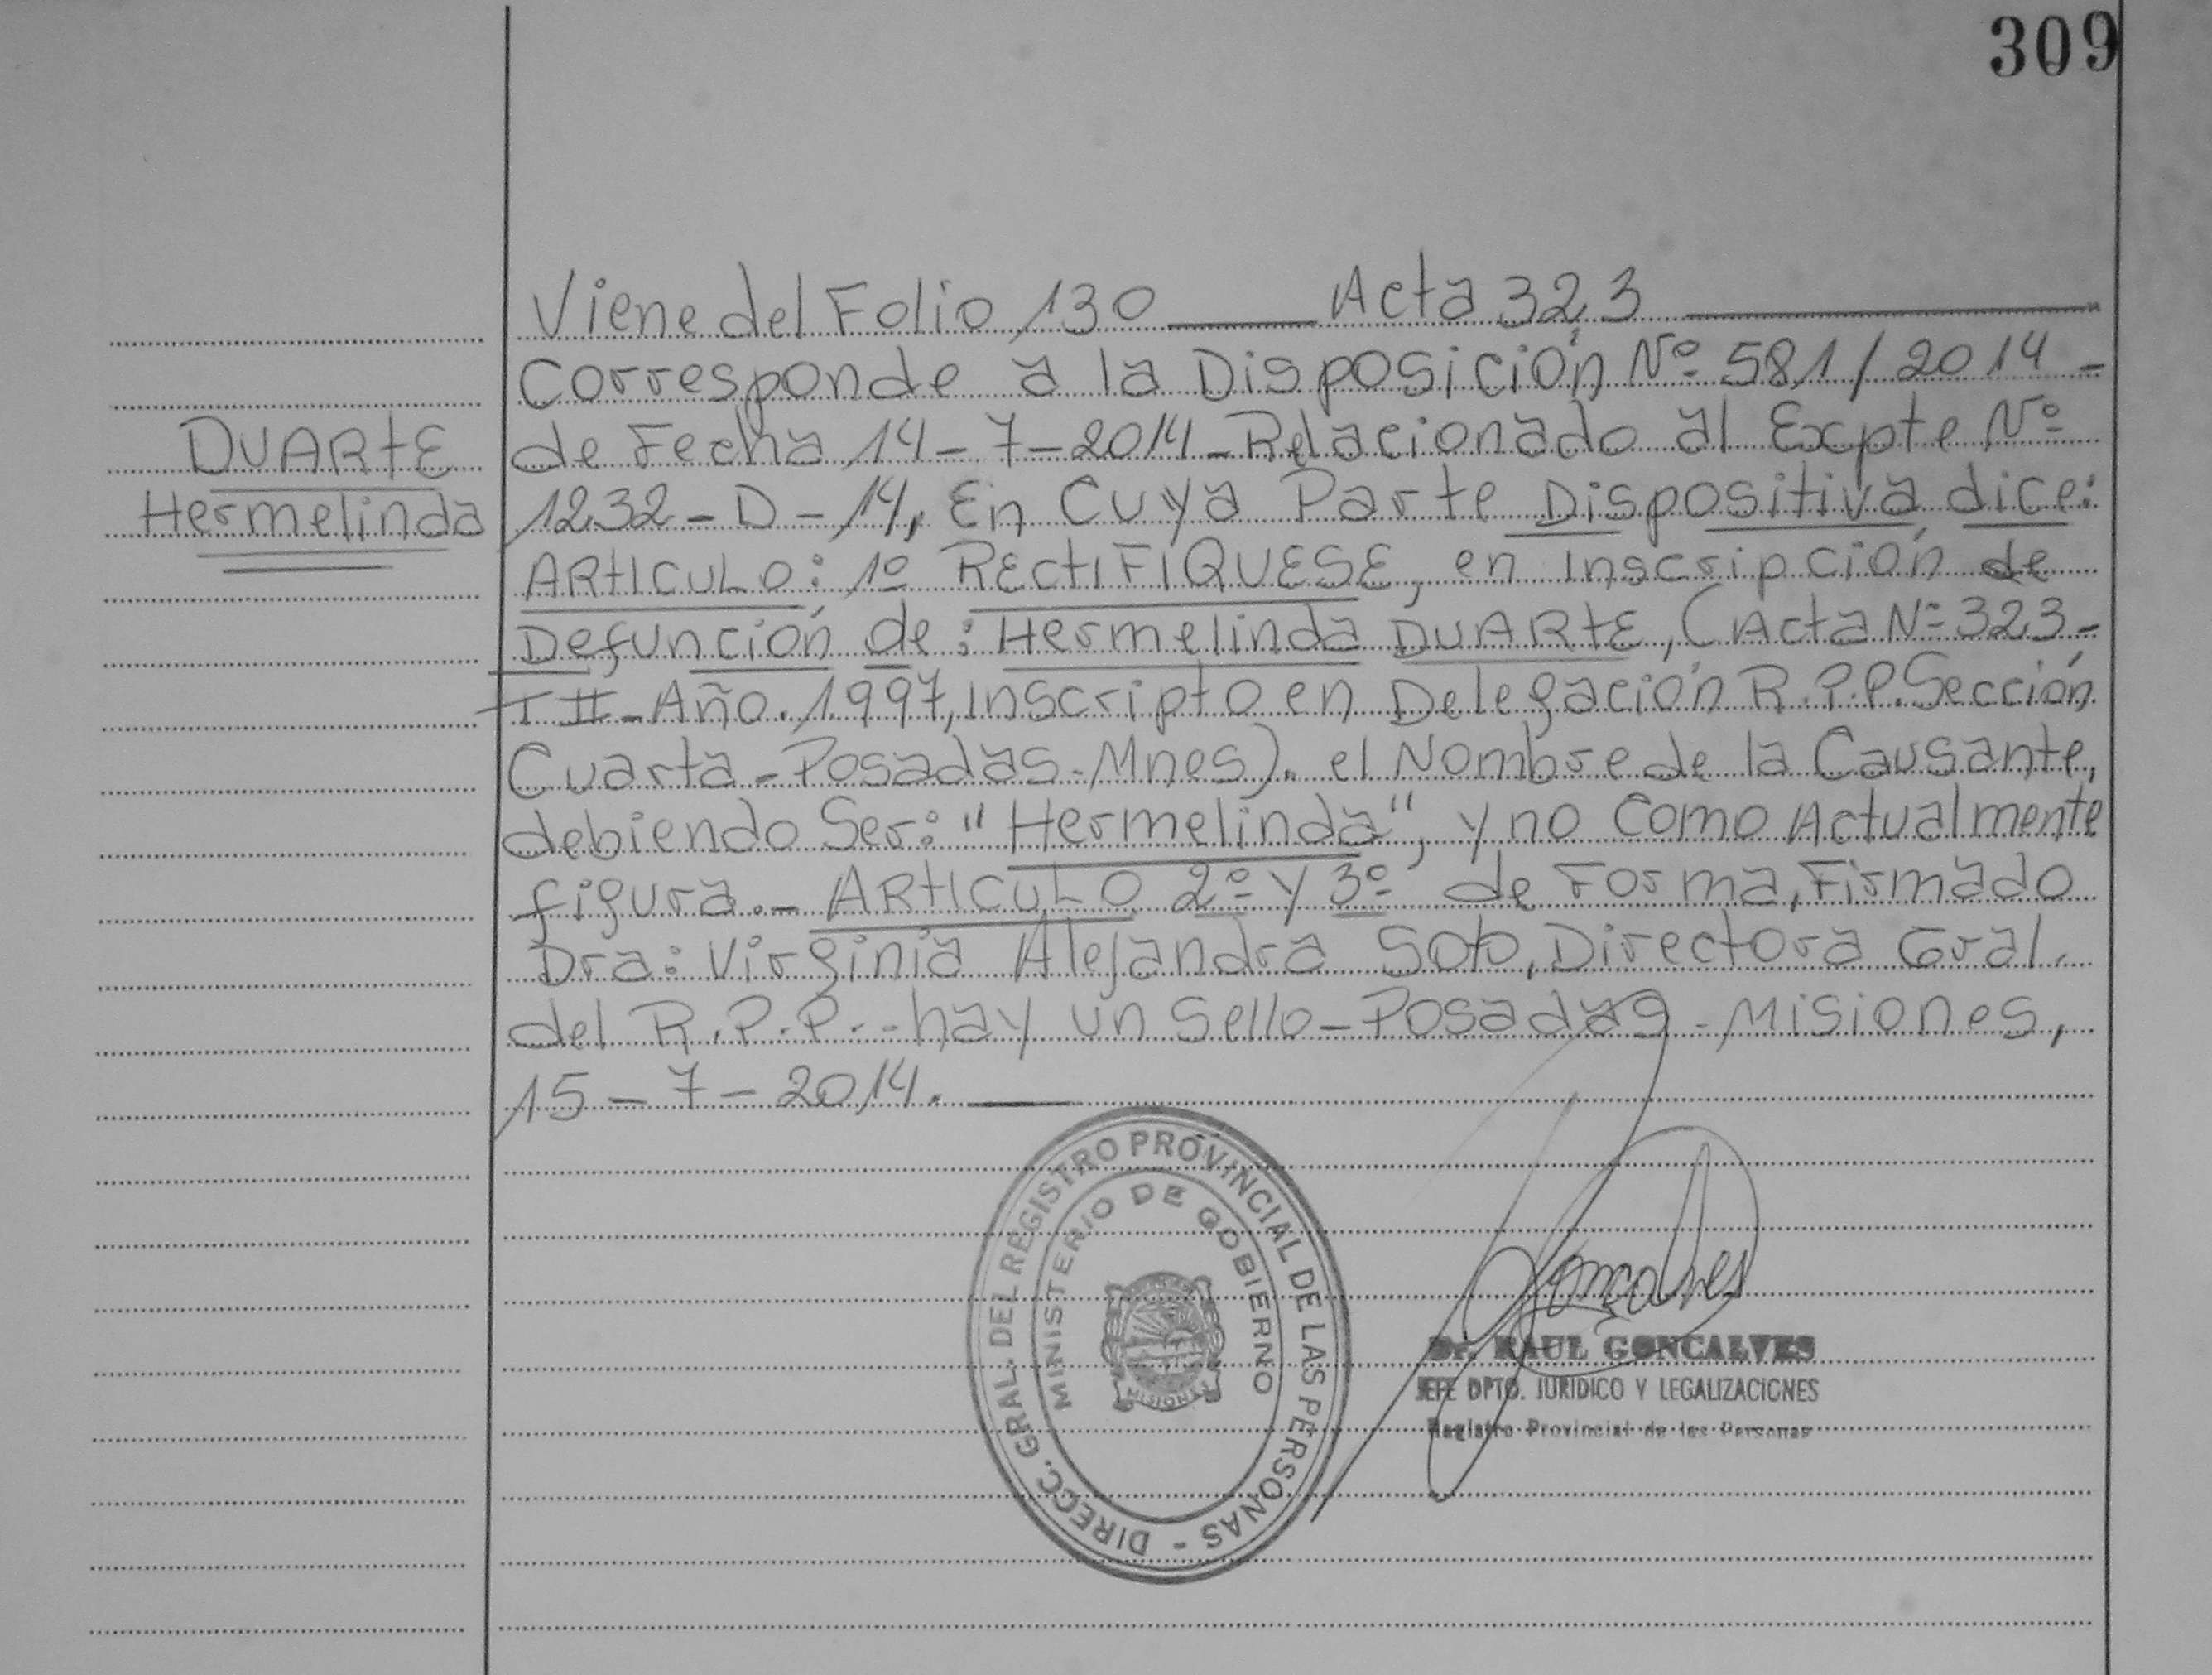 309
Viene del Folio 130 — Acta 323 —
Corresponde a la Disposición Nº 581/2014 -
de Fecha 14-7-2014- Relacionado al Expte Nº
1232-D-14, En Cuya Parte Dispositiva dice:
ARTICULO: 1º RECTIFIQUESE, en Inscripción de
Defunción de: Hermelinda DUARTE, (Acta Nº 323-
T II- Año. 1997, inscripto en Delegación R.P.P. Sección
Cuarta- Posadas- Mnes). el Nombre de la Causante,
debiendo Ser: "Hermelinda", y no Como Actualmente
figura.- ARTICULO 2º y 3º de Forma, Firmado
Dra: Virginia Alejandra Soto, Directora Gral.
del R.P.P.- hay un Sello- Posadas- Misiones,
15-7-2014. —
DUARTE
Hermelinda
DIRECC. GRAL. DEL REGISTRO PROVINCIAL DE LAS PERSONAS -
MINISTERIO DE GOBIERNO
MISIONES
Goncalves
Dr. RAUL GONCALVES
JEFE DPTO. JURIDICO Y LEGALIZACIONES
Registro Provincial de las Personas